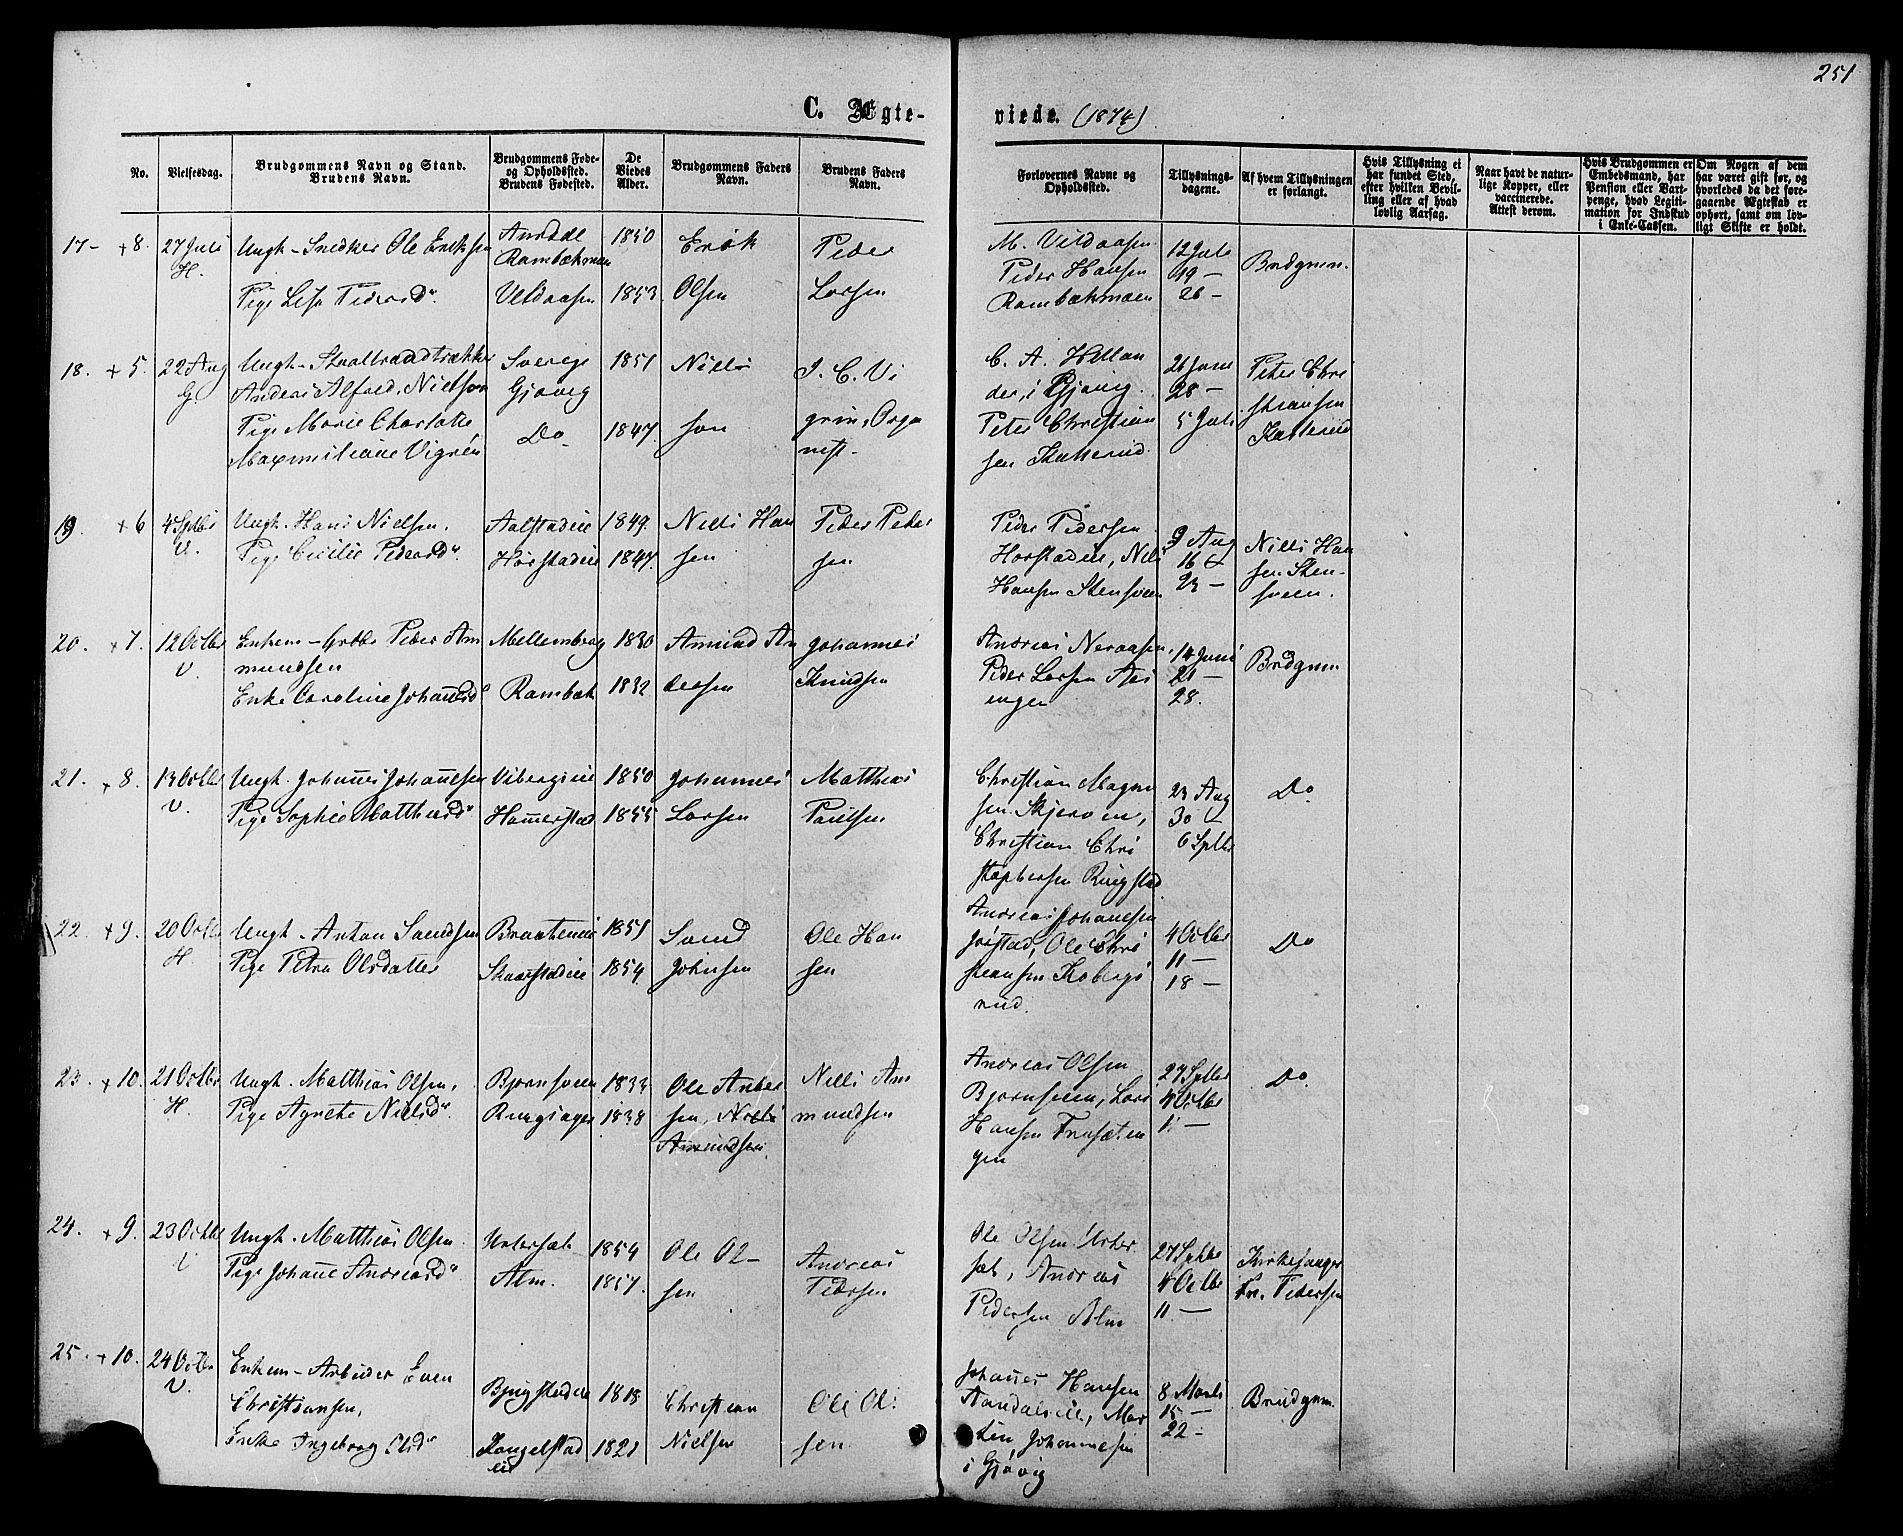 251
C. Ægte-
viede. (1874)
No.
Vielsesdag.
Brudgommens Navn og Stand.
Brudens Navn.
Brudgommens Føde-
og Opholdssted.
Brudens Fødested.
De
Viedes
Alder.
Brudgommens Faders
Navn.
Brudens Faders
Navn.
Forlovernes Navne og
Opholdssted.
Tillysnings-
dagene.
Af hvem Tillysningen
er forlangt.
Hvis Tillysning ei
har fundet Sted,
efter hvilken Bevil-
ling eller af hvad
lovlig Aarsag.
Naar havt de natur-
lige Kopper, eller
vaccinerede.
Attest derom.
Hvis Brudgommen er
Embedsmand, har
Pension eller Vart-
penge, hvad Legiti-
mation for Indskud
i Enke-Cassen.
Om Nogen af dem
har været gift før, og
hvorledes da det fore-
gaaende Ægteskab er
ophørt, samt om lov-
ligt Skifte er holdt.
17- +8. 27 Juli
H.
Ungk - Snedker Ole Eriksen
Pige Lise Pedersd.
Rambækmoen
Veldaasen
1850
1853
Erik
Olsen
Peder
Larsen
M. Vildaasen
Peder Hansen
Rambækmoen
12 Juli
19 -
26 -
Brdgmn.
18. +5. 22 Aug
G.
Ungk - Staaltraadtrækker
Anders Alfred Nielson
Pige Marie Charlotte
Maxmiliane Vigrén
Sverige
Gjøvig
Do
1851
1847.
Niels
son
I. C. Vi
grin, Orga
nist.
C. A. Hellan
der, i Gjøvig.
Peter Christian
sen Katterud.
21 Juni
28 -
5 Juli
Peter Chri
stiansen
Katterud
19. +6 4 Septbr
V.
Ungk. Hans Nielsen.
Pige Cecilie Pedersd.
Aalstadeie
Horstadeie
1849.
1847.
Niels Han
sen
Peder Peder
sen
Peder Pedersen
Horstadeie, Niels
Hansen Stensveen
9 Aug
16 -
23 -
Niels Han
sen Sten-
sveen.
20. +7. 12 Octbr
V.
Enkem - Peder Am
mundsen
Enke Caroline Johannesd.
Mellembrag
Rambæk
1830
1832
Amund An
dersen
Johannes
Knudsen
Andreas Neraasen,
Peder Larsen Aas
engen
14 Juni
21 -
28.
Brdgmn
21. +8. 13 Octbr
V.
Ungk. Johannes Johannesen
Pige Sophie Matthiasd.
Vibergseie
Hammerstad
1850
1855
Johannes
Larsen
Matthias
Paulsen
Christian Magnu
sen Skjerven,
Christian Chri
stophersen Ringstad
23 Aug
30 -
6 Septbr
Do
22. +9. 20 Octbr
H.
Ungk. - Anton Svendsen
Pige Petra Olsdatter
Braateneie
Skaarstadeie
1851
1854.
Svend
Johnsen
Ole Han
sen
Andreas Johannesen
Jøistad, Ole Chri
stiansen Kobergs
rud.
4 Octbr
11 -
18 -
Do
23. +10. 21 Octbr
H.
Ungk. Matthias Olsen,
Pige Agnethe Nielsd.
Bjørnsveen
Ringsager
1833
1838
Ole Ander
sen, Niels
Amundsen.
Niels Am
mundsen
Andreas Olsen
Bjørnsveen, Lars
Hansen Frusæten
gen
27 Septbr
4 Octbr
11 -
Do.
24. +9. 23 Octbr
V
Ungk. Matthias Olsen
Pige Johanne Andreasd.
Alm.
1854
1857.
Ole Ol-
sen
Andreas
Pedersen
Ole Olsen
sæt, Andreas
Pedersen Alm
27 Septbr
4 Octbr
11 -
Kirkesanger
Fr. Pedersen
25. +10. 24 Octbr
V.
Enkem - Arbeider Even
Christiansen,
Enke Ingeborg Olsd.
Bjugstadeie
Kongelstad
eie
1818
1821
Christian
Nielsen
Ole Ol
sen
Johannes Hansen
Aandalseie, Mar
tin Johannesen
i Gjøvig
8 Marts
15 -
22 -
Brudgmn.